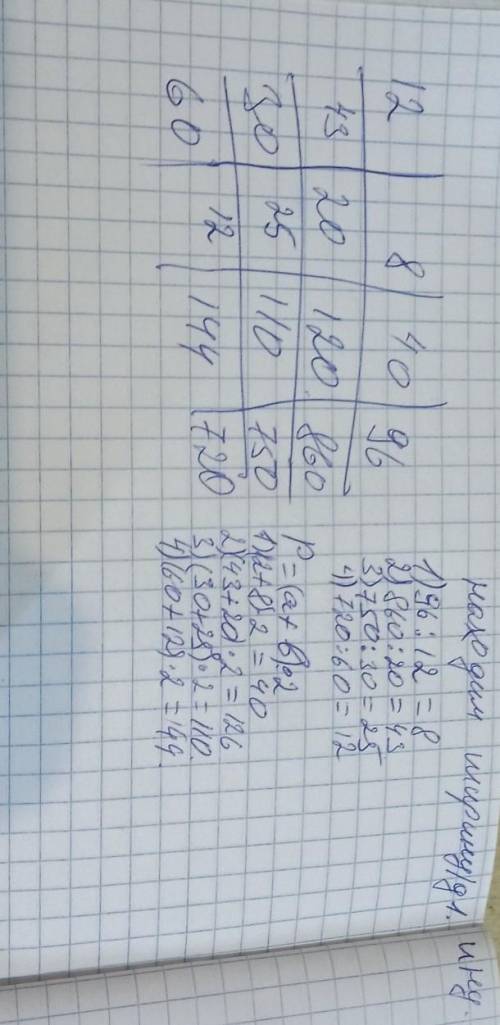 12 8 40 96
43 20 120 860
30 25 110 750
60 12 144 720
находим ширину/дл.
1) 96:12=8
2) 860:20=43
3) 750:30=25
4) 720:60=12
P=(a+b)·2
2)(43+20·2=126
3)(30+25)·2=110.
4)(60+12)·2=144.